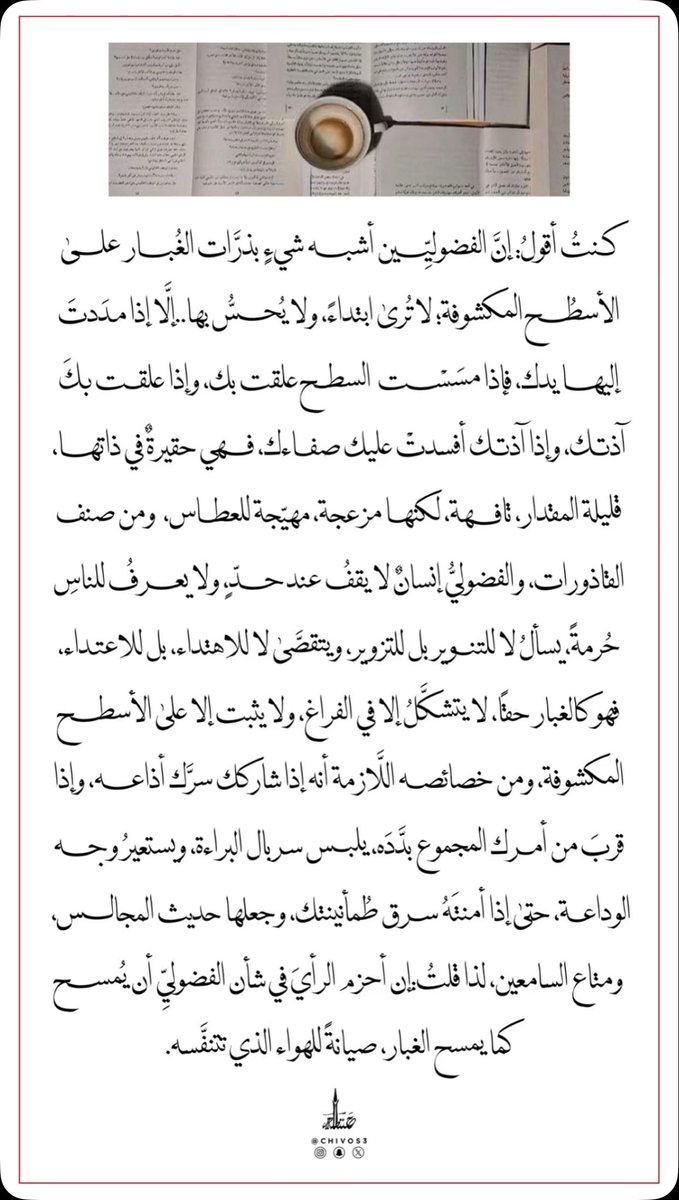 كنتُ أقولُ: إنَّ الفضوليِّين أشبه شيءٍ بذرَّات الغُبار علىٰ
الأسطُح المكشوفة؛ لا تُرىٰ ابتداءً، ولا يُحسُّ بها..إلَّا إذا مدَدتَ
إليها يدك، فإذا مسَسْت السطح علقت بك، وإذا علقت بكَ
آذتك، وإذا آذتك أفسدتْ عليك صفاءك، فهي حقيرةٌ في ذاتها،
قليلة المقدار، تافهة، لكنها مزعجة، مهيّجة للعطاس، ومن صنف
القاذورات، والفضوليُّ إنسانٌ لا يقفُ عند حدّ، ولا يعرفُ للناسِ
حُرمةً، يسألُ لا للتنوير بل للتزوير، ويتقصَّىٰ لا للاهتداء، بل للاعتداء،
فهو كالغبار حقًا، لا يتشكَّلُ إلا في الفراغ، ولا يثبت إلا علىٰ الأسطح
المكشوفة، ومن خصائصه اللَّازمة أنه إذا شاركك سرَّك أذاعه، وإذا
قربَ من أمرك المجموع بدَّدَه، يلبس سربال البراءة، ويستعيرُ وجه
الوداعة، حتىٰ إذا أمنتَهُ سرق طُمأنينتك، وجعلها حديث المجالس،
ومتاع السامعين، لذا قلتُ: إن أحزم الرأيَ في شأن الفضوليِّ أن يُمسح
كما يمسح الغبار، صيانةً للهواء الذي تتنفَّسه.
@CHIVOS3